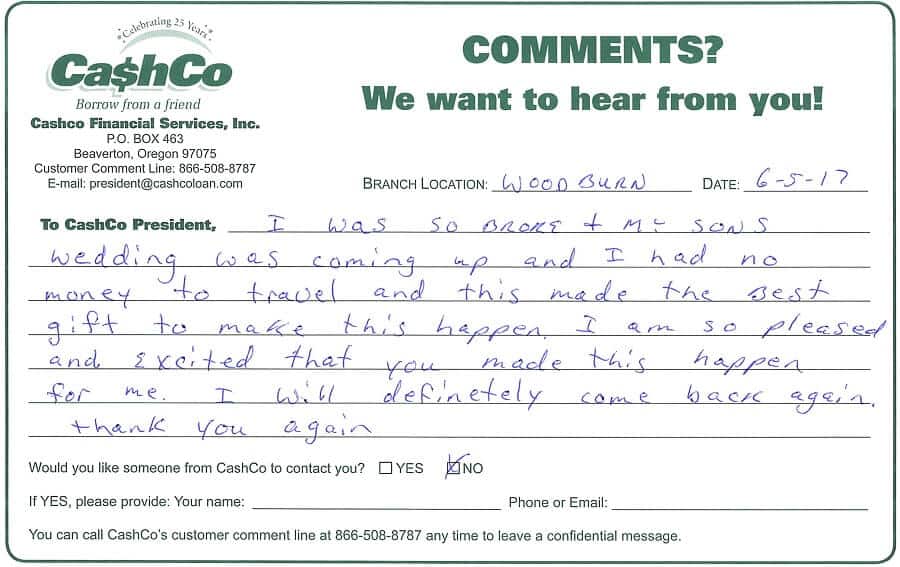 Celebrating 25 Years
Ca$hCo
Borrow from a friend
Cashco Financial Services, Inc.
P.O. BOX 463
Beaverton, Oregon 97075
Customer Comment Line: 866-508-8787
E-mail: president@cashcoloan.com
COMMENTS?
We want to hear from you!
BRANCH LOCATION: WOODBURN DATE: 6-5-17
To CashCo President, I was so BROKE + My SONS
wedding was coming up and I had no
money to travel and this made the Best
gift to make this happen. I am so pleased
and Excited that you made this happen
for me. I will definetely come back again.
thank you again
Would you like someone from CashCo to contact you? ☐ YES ☒ NO
If YES, please provide: Your name: Phone or Email:
You can call CashCo's customer comment line at 866-508-8787 any time to leave a confidential message.